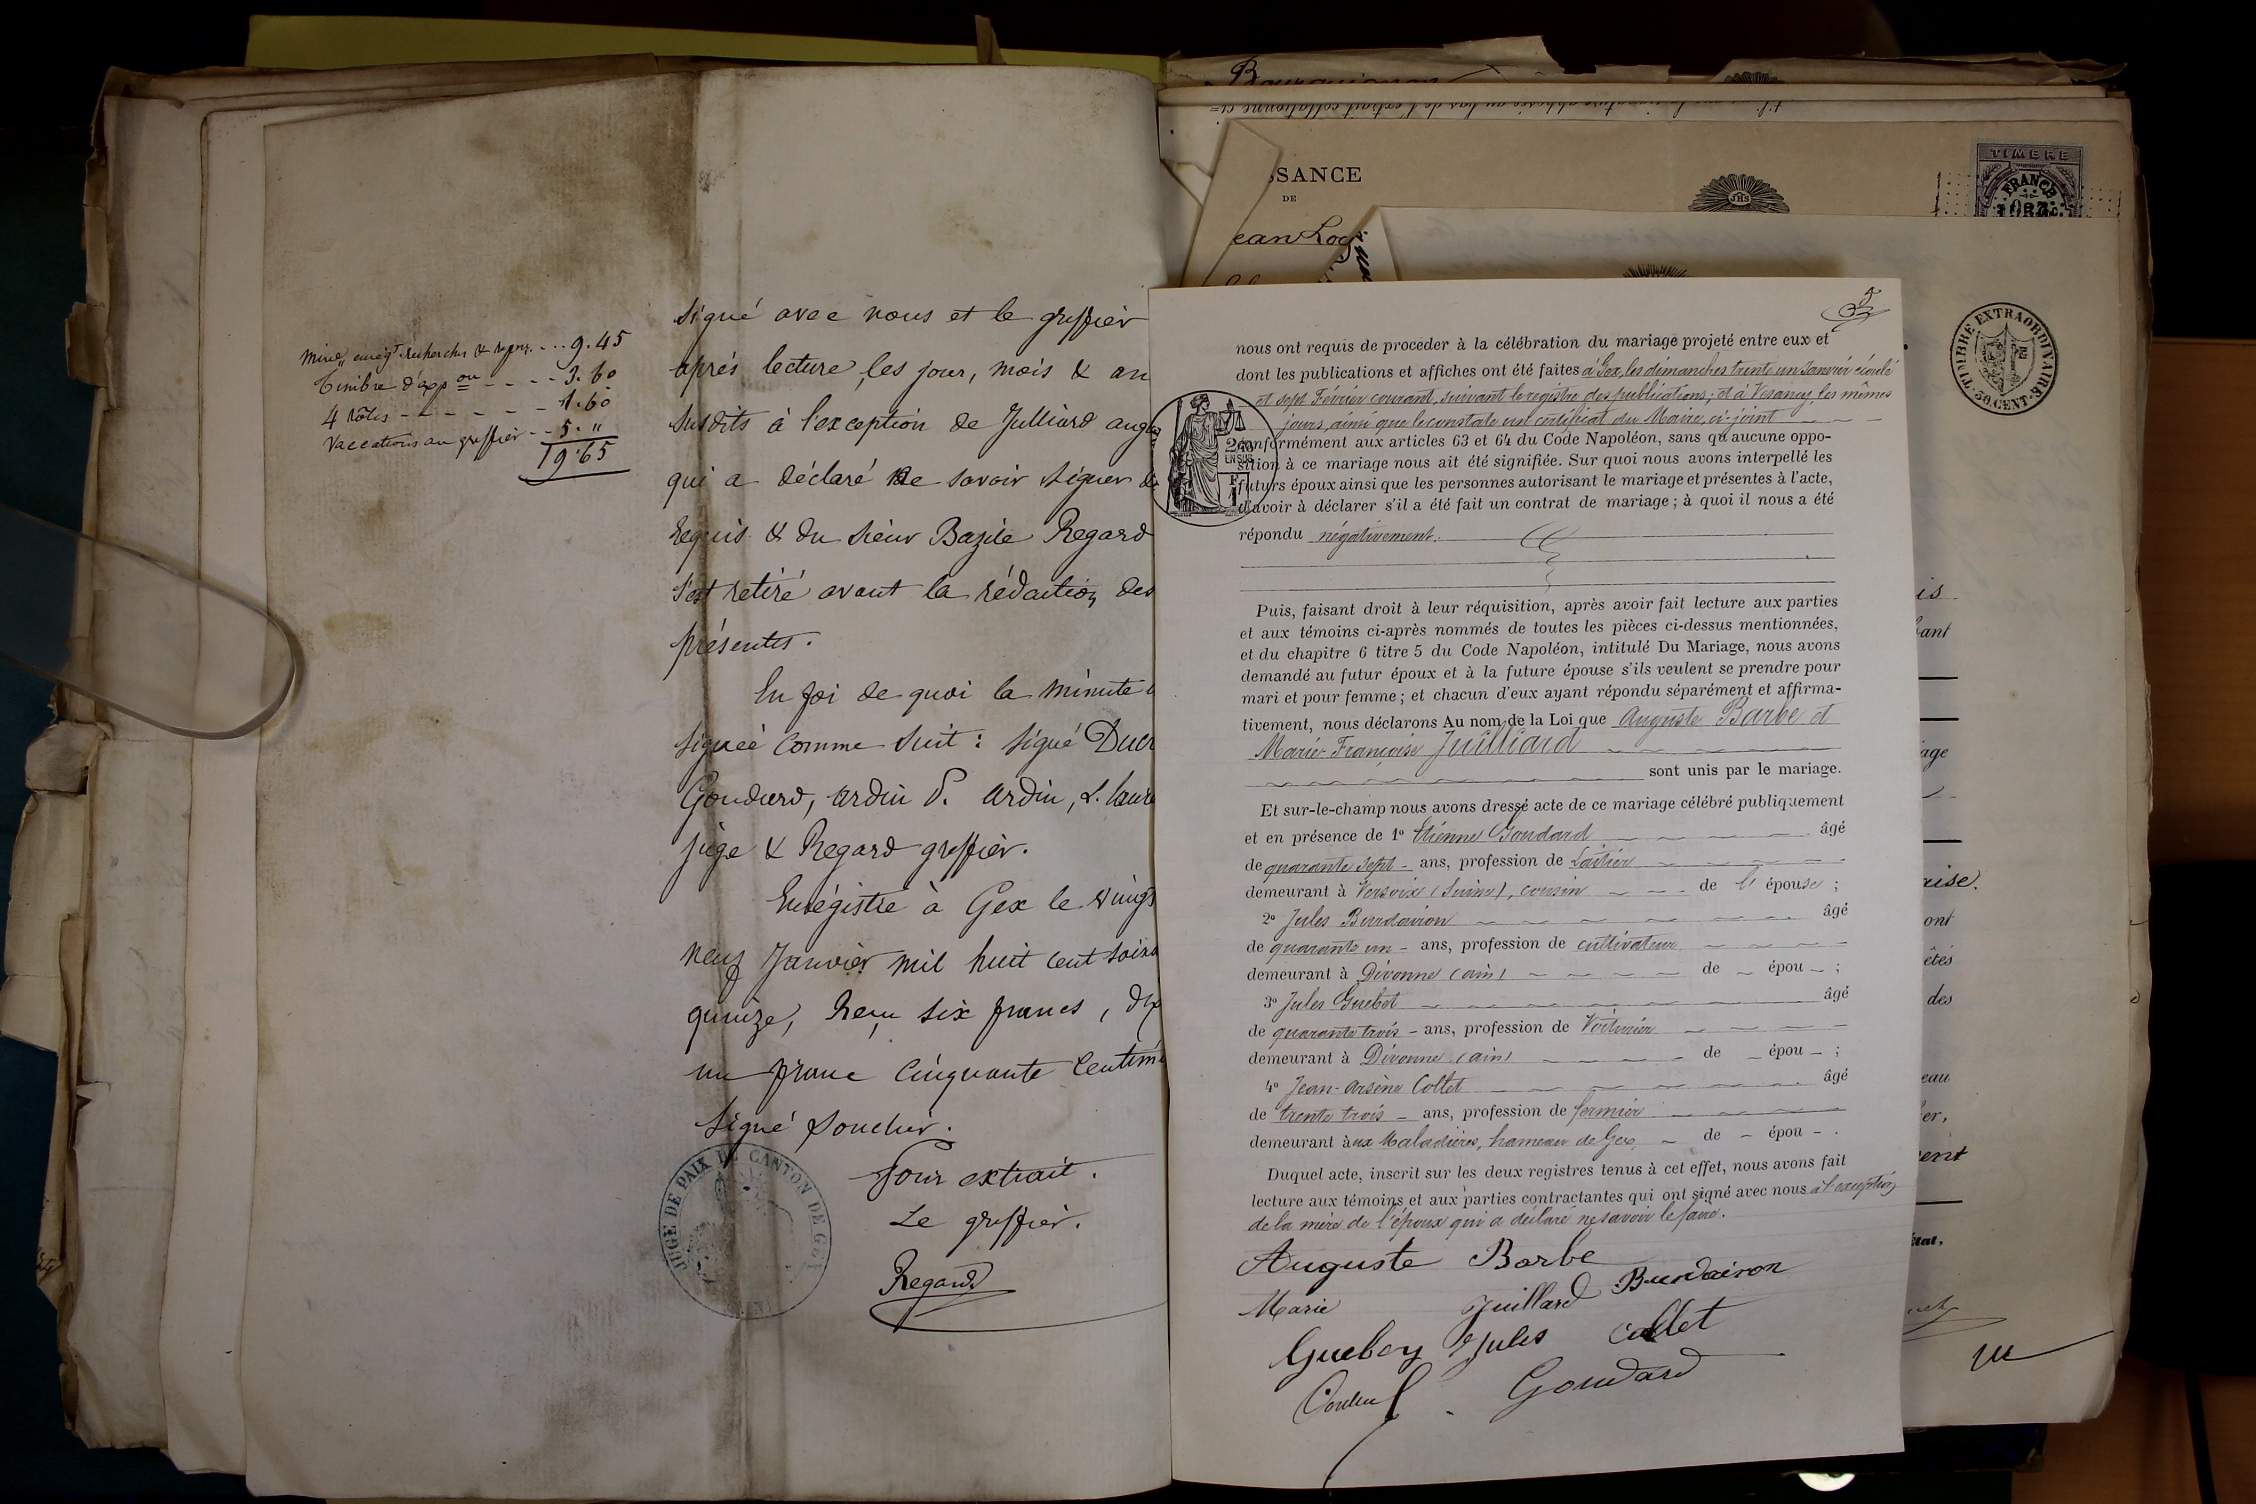 Mine, enreg.t recherches & repro. --- 9.45
Timbre d'expon ---- 3.60
4 rôles ------ 1.60
Vaccations au greffier -- 5. "
19.65
signé avec nous et le greffier
après lecture, les jour, mois & an
susdits à l'exception de Julliard
qui a déclaré ne savoir signer de
requis & du sieur Bazile Regard
s'est retiré avant la rédaction des
présentes.
En foi de quoi la minute
signée comme suit : signé Ducr
Goudard, Ardin P. Ardin, L.
juge & Regard greffier.
Enrégistré à Gex le vingt
neuf Janvier mil huit cent soixa
quinze, Reçu six francs,
un franc cinquante centim
Signé Poucher.
Pour extrait.
Le greffier.
Regard
JUGE DE PAIX DU CANTON DE GEX
(AIN)
Bourguignon
SSANCE
DE
ean
JHS
TIMBRE
FRANCE
TIMBRE EXTRAORDINAIRE
50. CENT.
nous ont requis de proceder à la célébration du mariage projeté entre eux et
dont les publications et affiches ont été faites à Gex, les dimanches trente un Janvier écoulé
et sept Février courant, suivant le registre des publications; et à Vesancy, les mêmes
jours, ainsi que le constate un certificat du Maire, ci-joint
conformément aux articles 63 et 64 du Code Napoléon, sans qu'aucune oppo-
sition à ce mariage nous ait été signifiée. Sur quoi nous avons interpellé les
futurs époux ainsi que les personnes autorisant le mariage et présentes à l'acte,
d'avoir à déclarer s'il a été fait un contrat de mariage ; à quoi il nous a été
répondu négativement.
Puis, faisant droit à leur réquisition, après avoir fait lecture aux parties
et aux témoins ci-après nommés de toutes les pièces ci-dessus mentionnées,
et du chapitre 6 titre 5 du Code Napoléon, intitulé Du Mariage, nous avons
demandé au futur époux et à la future épouse s'ils veulent se prendre pour
mari et pour femme ; et chacun d'eux ayant répondu séparément et affirma-
tivement, nous déclarons Au nom de la Loi que Auguste Barbe et
Marie-Françoise Juilliard
sont unis par le mariage.
Et sur-le-champ nous avons dressé acte de ce mariage célébré publiquement
et en présence de 1º Etienne Goudard âgé
de quarante sept - ans, profession de Laitier
demeurant à Versoix (Suisse), cousin de l' épouse ;
2º Jules Burdairon âgé
de quarante un - ans, profession de cultivateur
demeurant à Divonne (ain) de - épou - ;
3º Jules Guebet âgé
de quarante trois - ans, profession de Voiturier
demeurant à Divonne (ain) de - épou - ;
4º Jean-Arsène Collet âgé
de trente trois - ans, profession de fermier
demeurant aux Maladières, hameau de Gex, de - épou - .
Duquel acte, inscrit sur les deux registres tenus à cet effet, nous avons fait
lecture aux témoins et aux parties contractantes qui ont signé avec nous à l'exception
de la mère de l'époux qui a déclaré ne savoir le faire.
Auguste Barbe
Marie Juillard Burdairon
Guebey Jules Collet
Goudard
is
bant
iage
rise.
ont
êtés
des
eau
er,
vent
État.